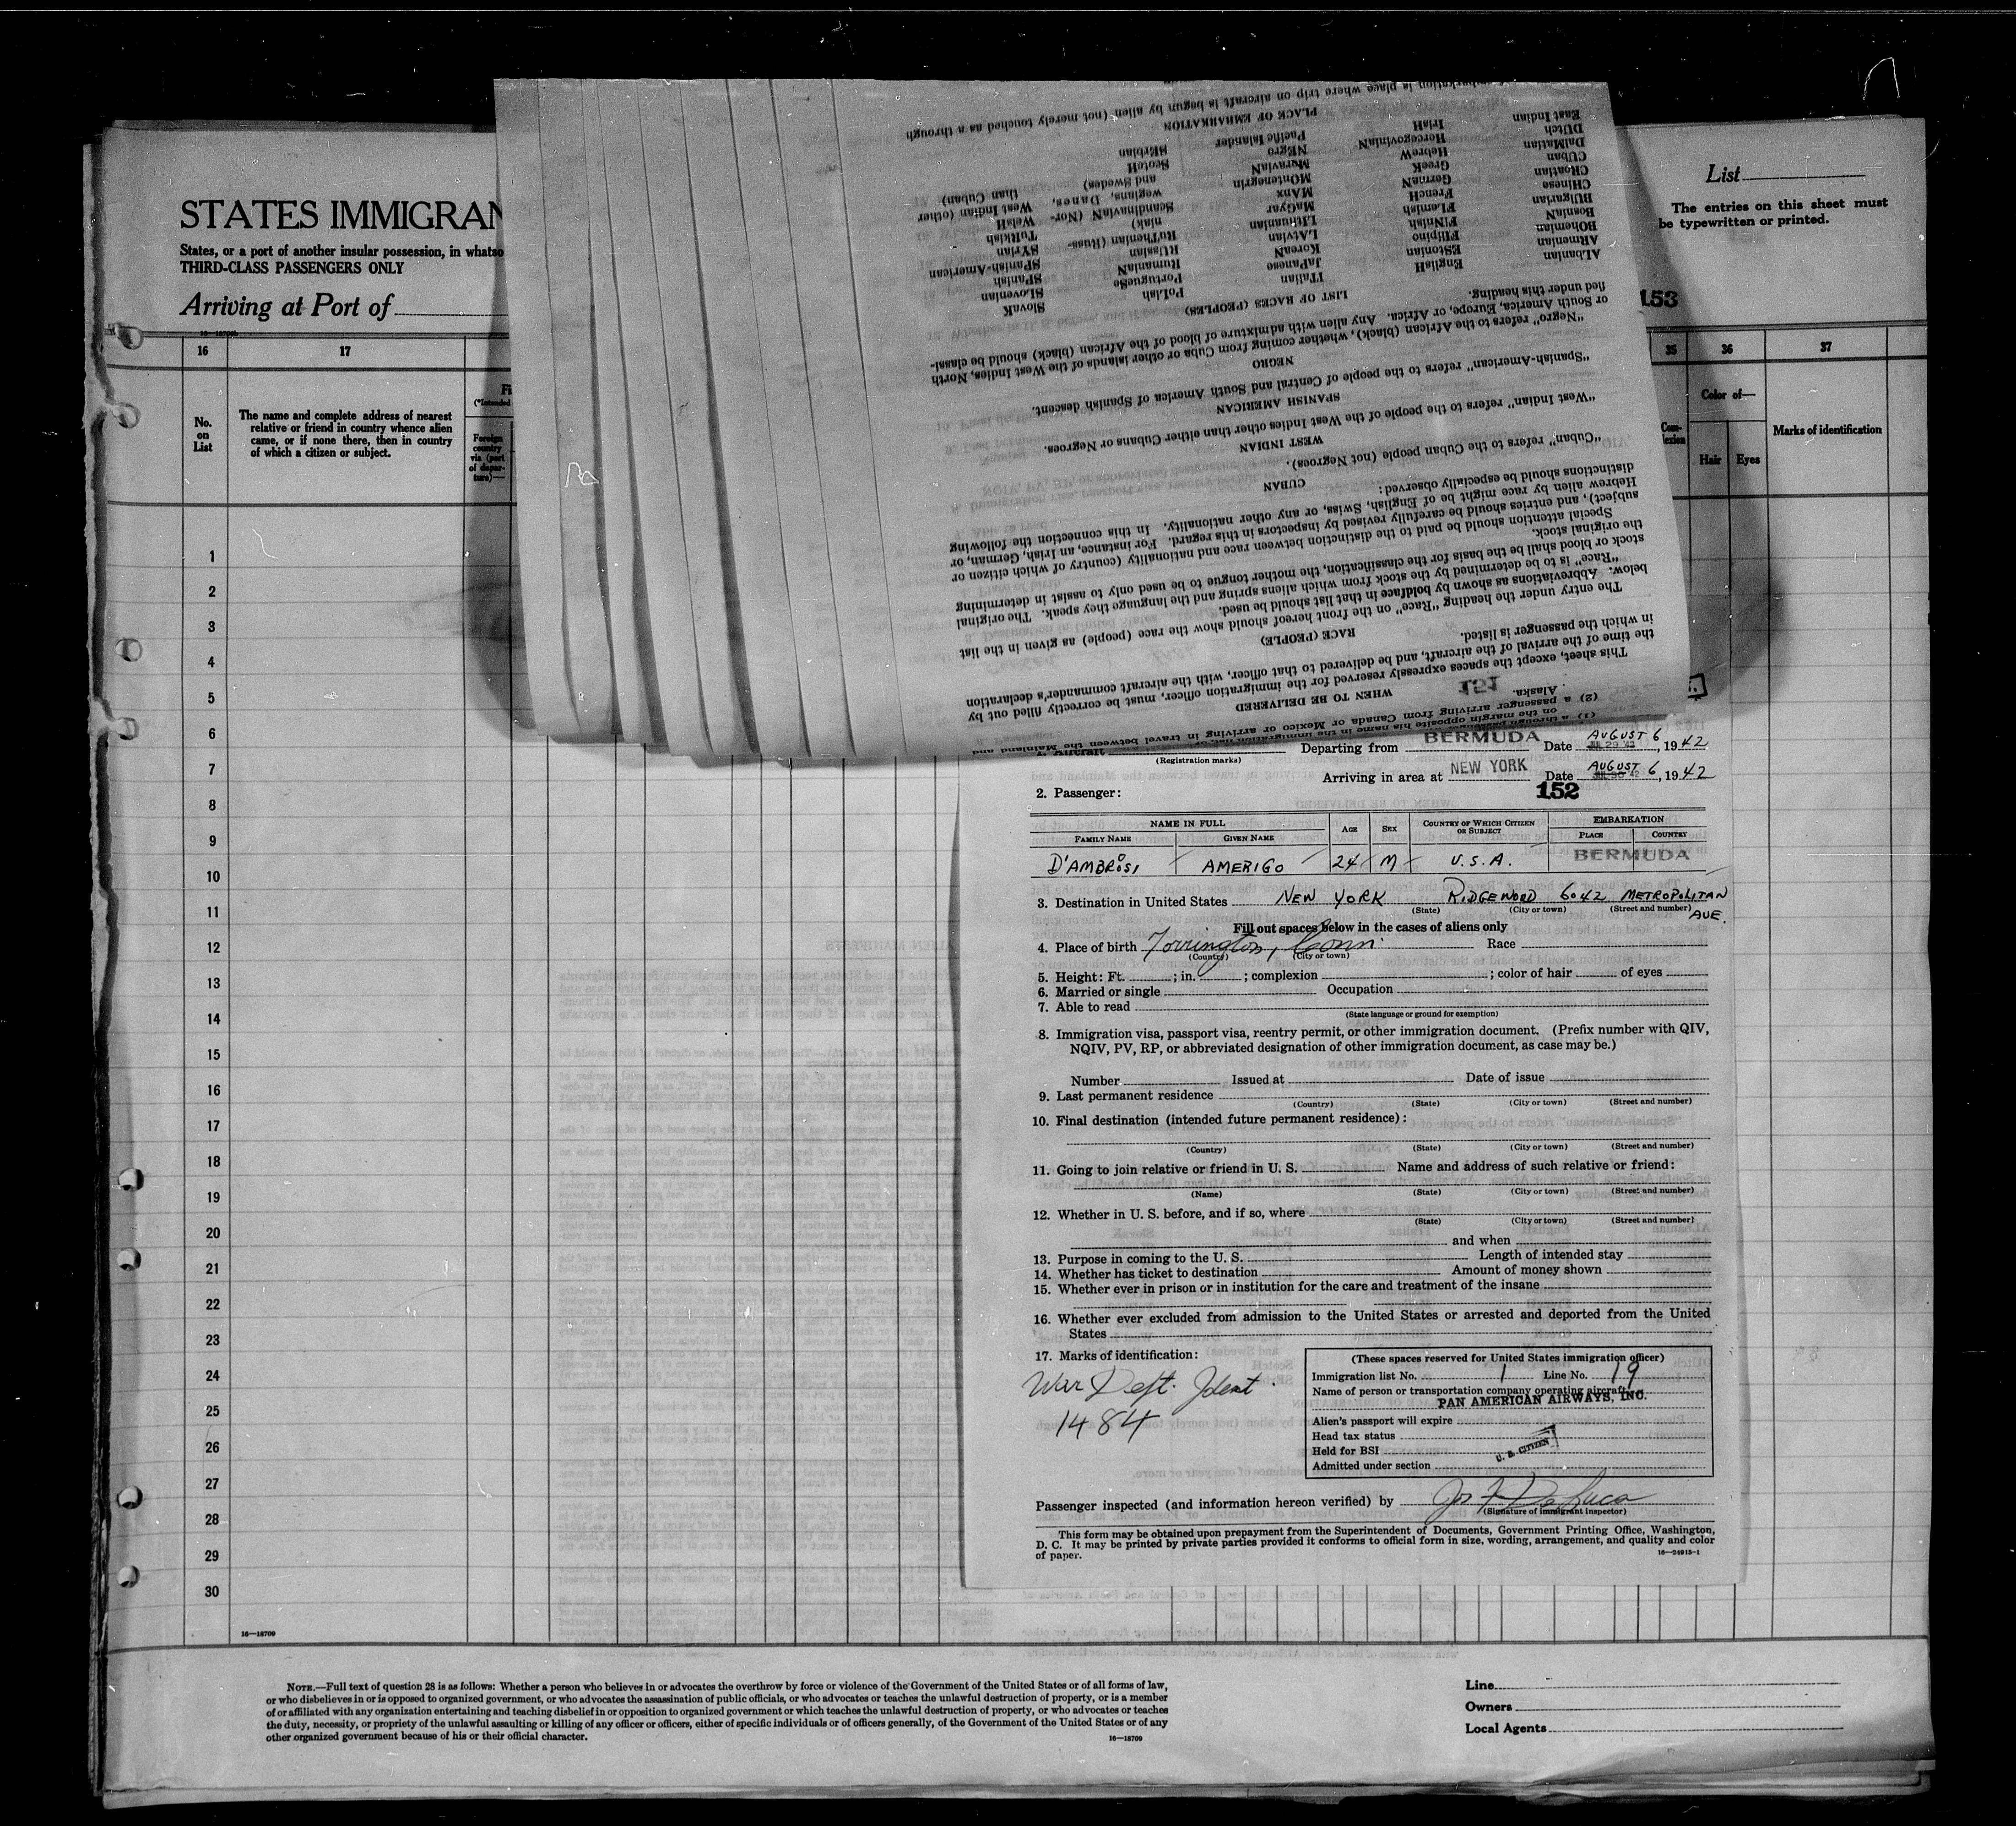 STATES IMMIGRAN
States, or a port of another insular possession, in whatso
THIRD-CLASS PASSENGERS ONLY
Arriving at Port of
List
The entries on this sheet must
be typewritten or printed.
153
16 17 35 36 37
No.
on
List
The name and complete address of nearest
relative or friend in country whence alien
came, or if none there, then in country
of which a citizen or subject.
Fi
(*Intended
Foreign
country
via (port
of depar-
ture)—
Com-
lexion
Color of—
Hair Eyes
Marks of identification
1
2
3
4
5
6
7
8
9
10
11
12
13
14
15
16
17
18
19
20
21
22
23
24
25
26
27
28
29
30
16—18709
(2) a passenger arriving from Canada or Mexico or arriving in travel between the Mainland and
Alaska.
151
WHEN TO BE DELIVERED
This sheet, except the spaces expressly reserved for the immigration officer, must be correctly filled out by
the time of the arrival of the aircraft, and be delivered to that officer, with the aircraft commander's declaration
in which the passenger is listed.
RACE (PEOPLE)
The entry under the heading "Race" on the front hereof should show the race (people) as given in the list
below. Abbreviations as shown by boldface in that list should be used.
"Race" is to be determined by the stock from which aliens spring and the language they speak. The original
stock or blood shall be the basis for the classification, the mother tongue to be used only to assist in determining
the original stock.
Special attention should be paid to the distinction between race and nationality (country of which citizen or
subject), and entries should be carefully revised by inspectors in this regard. For instance, an Irish, German, or
Hebrew alien by race might be of English, Swiss, or any other nationality. In this connection the following
distinctions should be especially observed:
CUBAN
"Cuban" refers to the Cuban people (not Negroes).
WEST INDIAN
"West Indian" refers to the people of the West Indies other than either Cubans or Negroes.
SPANISH AMERICAN
"Spanish-American" refers to the people of Central and South America of Spanish descent.
NEGRO
"Negro" refers to the African (black), whether coming from Cuba or other islands of the West Indies, North
or South America, Europe, or Africa. Any alien with admixture of blood of the African (black) should be classi-
fied under this heading.
LIST OF RACES (PEOPLES)
ALbanian EnglisH ITalian PoLish SlovaK
ARmenian EStonian JaPanese PortugueSe SLovenian
BOhemian FIlipino KoreaN RumaniaN SPanish
BosniaN FINnish LAtvian RUssian SPanish-American
BUlgarian FLemish LIthuanian RuThenian (Russ- SYrian
CHinese FrencH MaGyar niak) TuRkish
CRoatian GermaN MAnx ScandinaviaN (Nor- WelsH
CUban GreeK MOntenegrin wegians, Danes, West Indian (other
DalMatian HebreW MoraviaN and Swedes) than Cuban)
DUtch HercegoviniaN NEgro ScotcH
East Indian IrisH Pacific Islander SErbian
PLACE OF EMBARKATION
is place where trip on aircraft is begun by alien (not merely touched as a through
Aircraft
(Registration marks)
Departing from BERMUDA Date AUGUST 6, 1942
Arriving in area at NEW YORK Date AUGUST 6, 1942
2. Passenger: 152
NAME IN FULL AGE SEX COUNTRY OF WHICH CITIZEN OR SUBJECT EMBARKATION
FAMILY NAME GIVEN NAME PLACE COUNTRY
D'AMBROSI AMERIGO 24 M U.S.A. BERMUDA
3. Destination in United States NEW YORK RIDGEWOOD 6042 METROPOLITAN AVE.
(State) (City or town) (Street and number)
Fill out spaces below in the cases of aliens only
4. Place of birth Torrington, Conn. Race
(Country) (City or town)
5. Height: Ft. ; in. ; complexion ; color of hair of eyes
6. Married or single Occupation
7. Able to read
(State language or ground for exemption)
8. Immigration visa, passport visa, reentry permit, or other immigration document. (Prefix number with QIV,
NQIV, PV, RP, or abbreviated designation of other immigration document, as case may be.)
Number Issued at Date of issue
9. Last permanent residence
(Country) (State) (City or town) (Street and number)
10. Final destination (intended future permanent residence):
(Country) (State) (City or town) (Street and number)
11. Going to join relative or friend in U. S. Name and address of such relative or friend:
(Name) (State) (City or town) (Street and number)
12. Whether in U. S. before, and if so, where
(State) (City or town) (Street and number)
and when
13. Purpose in coming to the U. S. Length of intended stay
14. Whether has ticket to destination Amount of money shown
15. Whether ever in prison or in institution for the care and treatment of the insane
16. Whether ever excluded from admission to the United States or arrested and deported from the United
States
17. Marks of identification:
War Dept. Ident.
1484
(These spaces reserved for United States immigration officer)
Immigration list No. 1 Line No. 19
Name of person or transportation company operating aircraft
PAN AMERICAN AIRWAYS, INC.
Alien's passport will expire
Head tax status
Held for BSI
U. S. CITIZEN
Admitted under section
Passenger inspected (and information hereon verified) by Jos F DeLuca
(Signature of immigrant inspector)
This form may be obtained upon prepayment from the Superintendent of Documents, Government Printing Office, Washington,
D. C. It may be printed by private parties provided it conforms to official form in size, wording, arrangement, and quality and color
of paper. 16—24913-1
NOTE.—Full text of question 28 is as follows: Whether a person who believes in or advocates the overthrow by force or violence of the Government of the United States or of all forms of law,
or who disbelieves in or is opposed to organized government, or who advocates the assassination of public officials, or who advocates or teaches the unlawful destruction of property, or is a member
of or affiliated with any organization entertaining and teaching disbelief in or opposition to organized government or which teaches the unlawful destruction of property, or who advocates or teaches
the duty, necessity, or propriety of the unlawful assaulting or killing of any officer or officers, either of specific individuals or of officers generally, of the Government of the United States or of any
other organized government because of his or their official character. 16—18709
Line
Owners
Local Agents